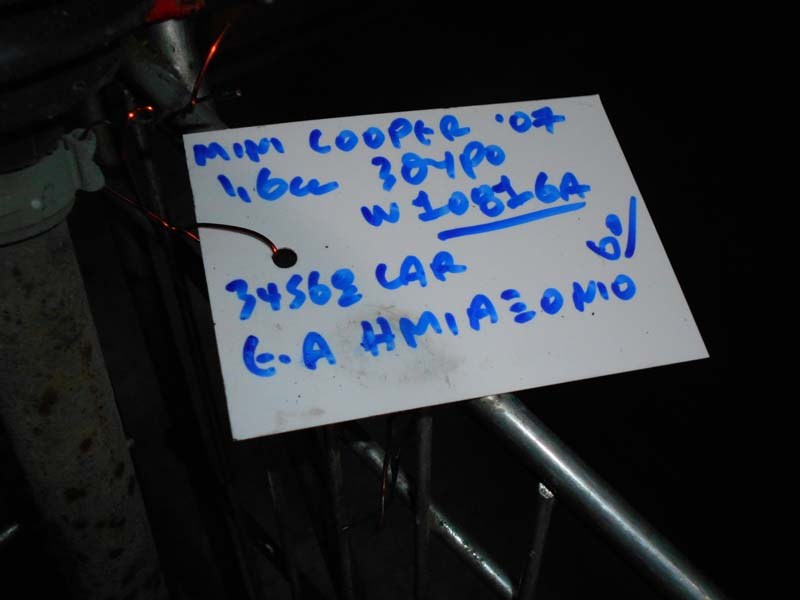 MINI COOPER '07
1,6cc 3ΘΥΡΟ
W10B16A
δ/
34568 CAR
Ε.Α ΗΜΙΑΞΟΝΙΟ